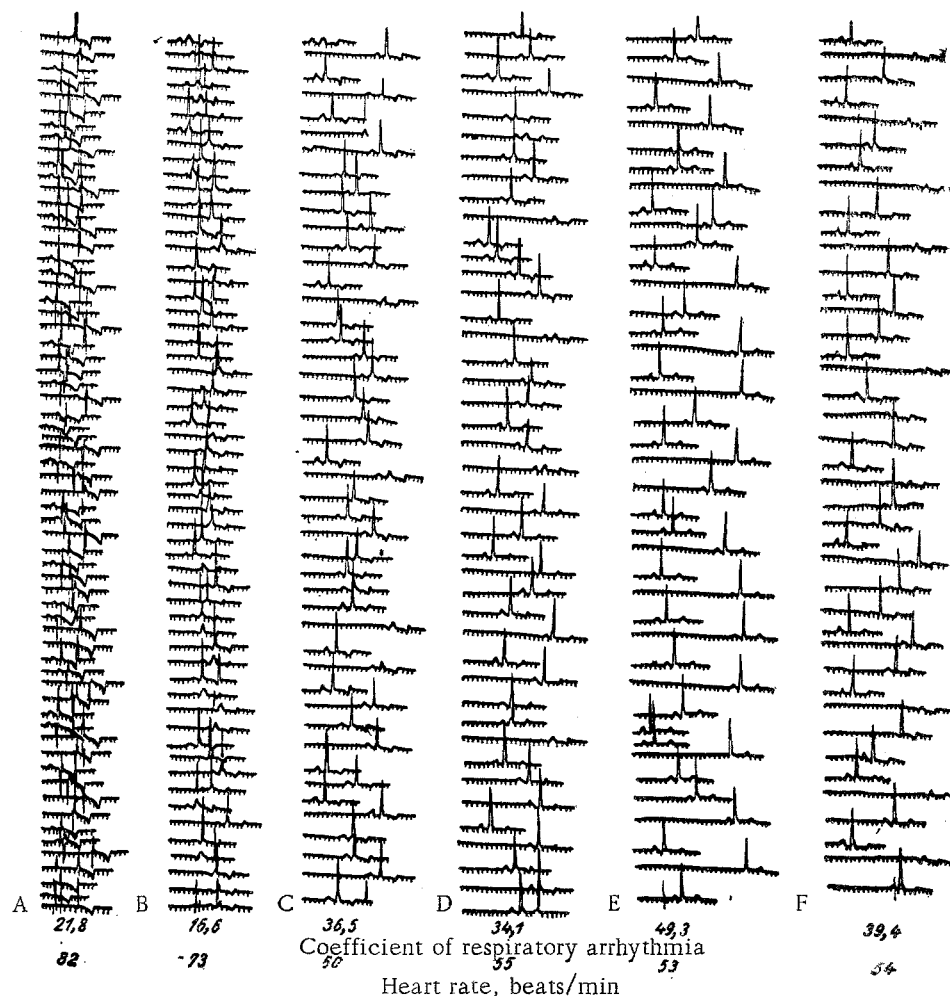 A B C D E F
21,8 16,6 36,5 34,1 49,3 39,4
Coefficient of respiratory arrhythmia
82 73 50 55 53 54
Heart rate, beats/min